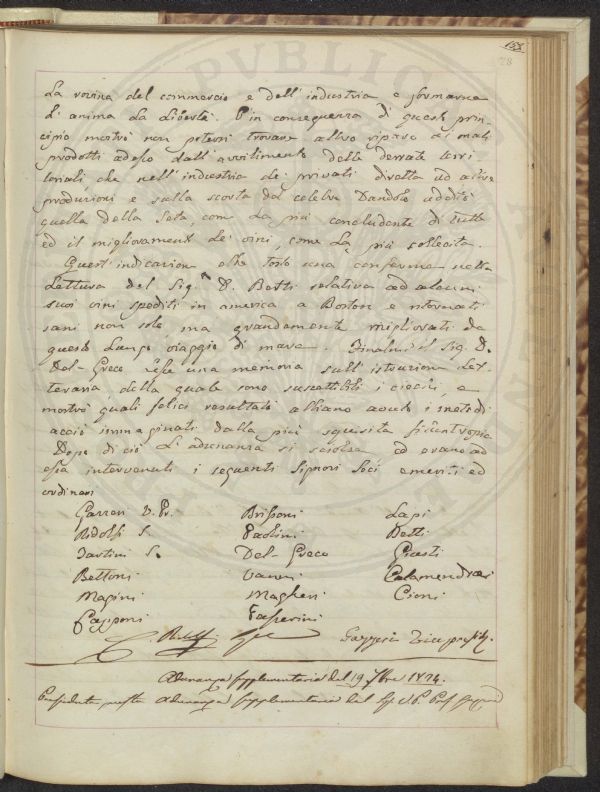 158
28
La rovina del commercio e dell'industria, e formarne
l'anima la Libertà. E in conseguenza di questo prin-
cipio mostrò non potersi trovare altro riparo ai mali
prodotti adesso dall'avvilimento delle derrate terri
toriali, che nell'industria de' privati diretta ad altre
produzioni e sulla scorta del celebre Dandolo additò
quella della Seta, come la più concludente di tutte
ed il miglioramento de' vini, come la più sollecita.
Quest'indicazione ebbe tosto una conferma nella
Lettura del Sigr. D. Betti relativa ad alcuni
suoi vini spediti in america a Boston e ritornati
sani non solo ma grandemente migliorati da
questo lungo viaggio di mare. Finalmte. il Sig. D.
Del-Greco lesse una memoria sull'istruzione let-
teraria, della quale sono suscettibili i ciechi, e
mostrò quali felici resultati abbiano avuto i metodi
acciò immaginati dalla più squisita filantropia
Dopo di ciò l'adunanza si sciolse, ed erano ad
essa intervenuti i seguenti Signori Soci emeriti ed
ordinari
Gazzeri V. Pr. Brissoni Lapi
Ridolfi S. Paolini Betti
Tartini S. Del-Greco Giusti
Bettoni Vanni Calamandrei
Magini Magheri Cioni
Capponi Passerini
C. Ridolfi Gazzeri Vice presidte.
Adunanza supplementaria del 19 7bre 1824.
Presiduta questa Adunanza supplementaria dal Sig. V. P. Prof. Gazzeri